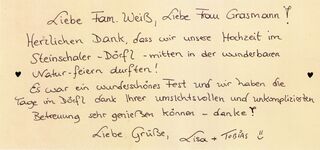 Liebe Fam. Weiß, Liebe Frau Grasmann!
Herzlichen Dank, dass wir unsere Hochzeit im
Steinschaler-Dörfl-mitten in der wunderbaren
Natur-feiern durften!
Es war ein wunderschönes Fest und wir haben die
Tage im Dörfl dank Ihrer umsichtsvollen und unkomplizierten
Betreuung sehr genießen können - danke!
Liebe Grüße, Lisa + Tobias